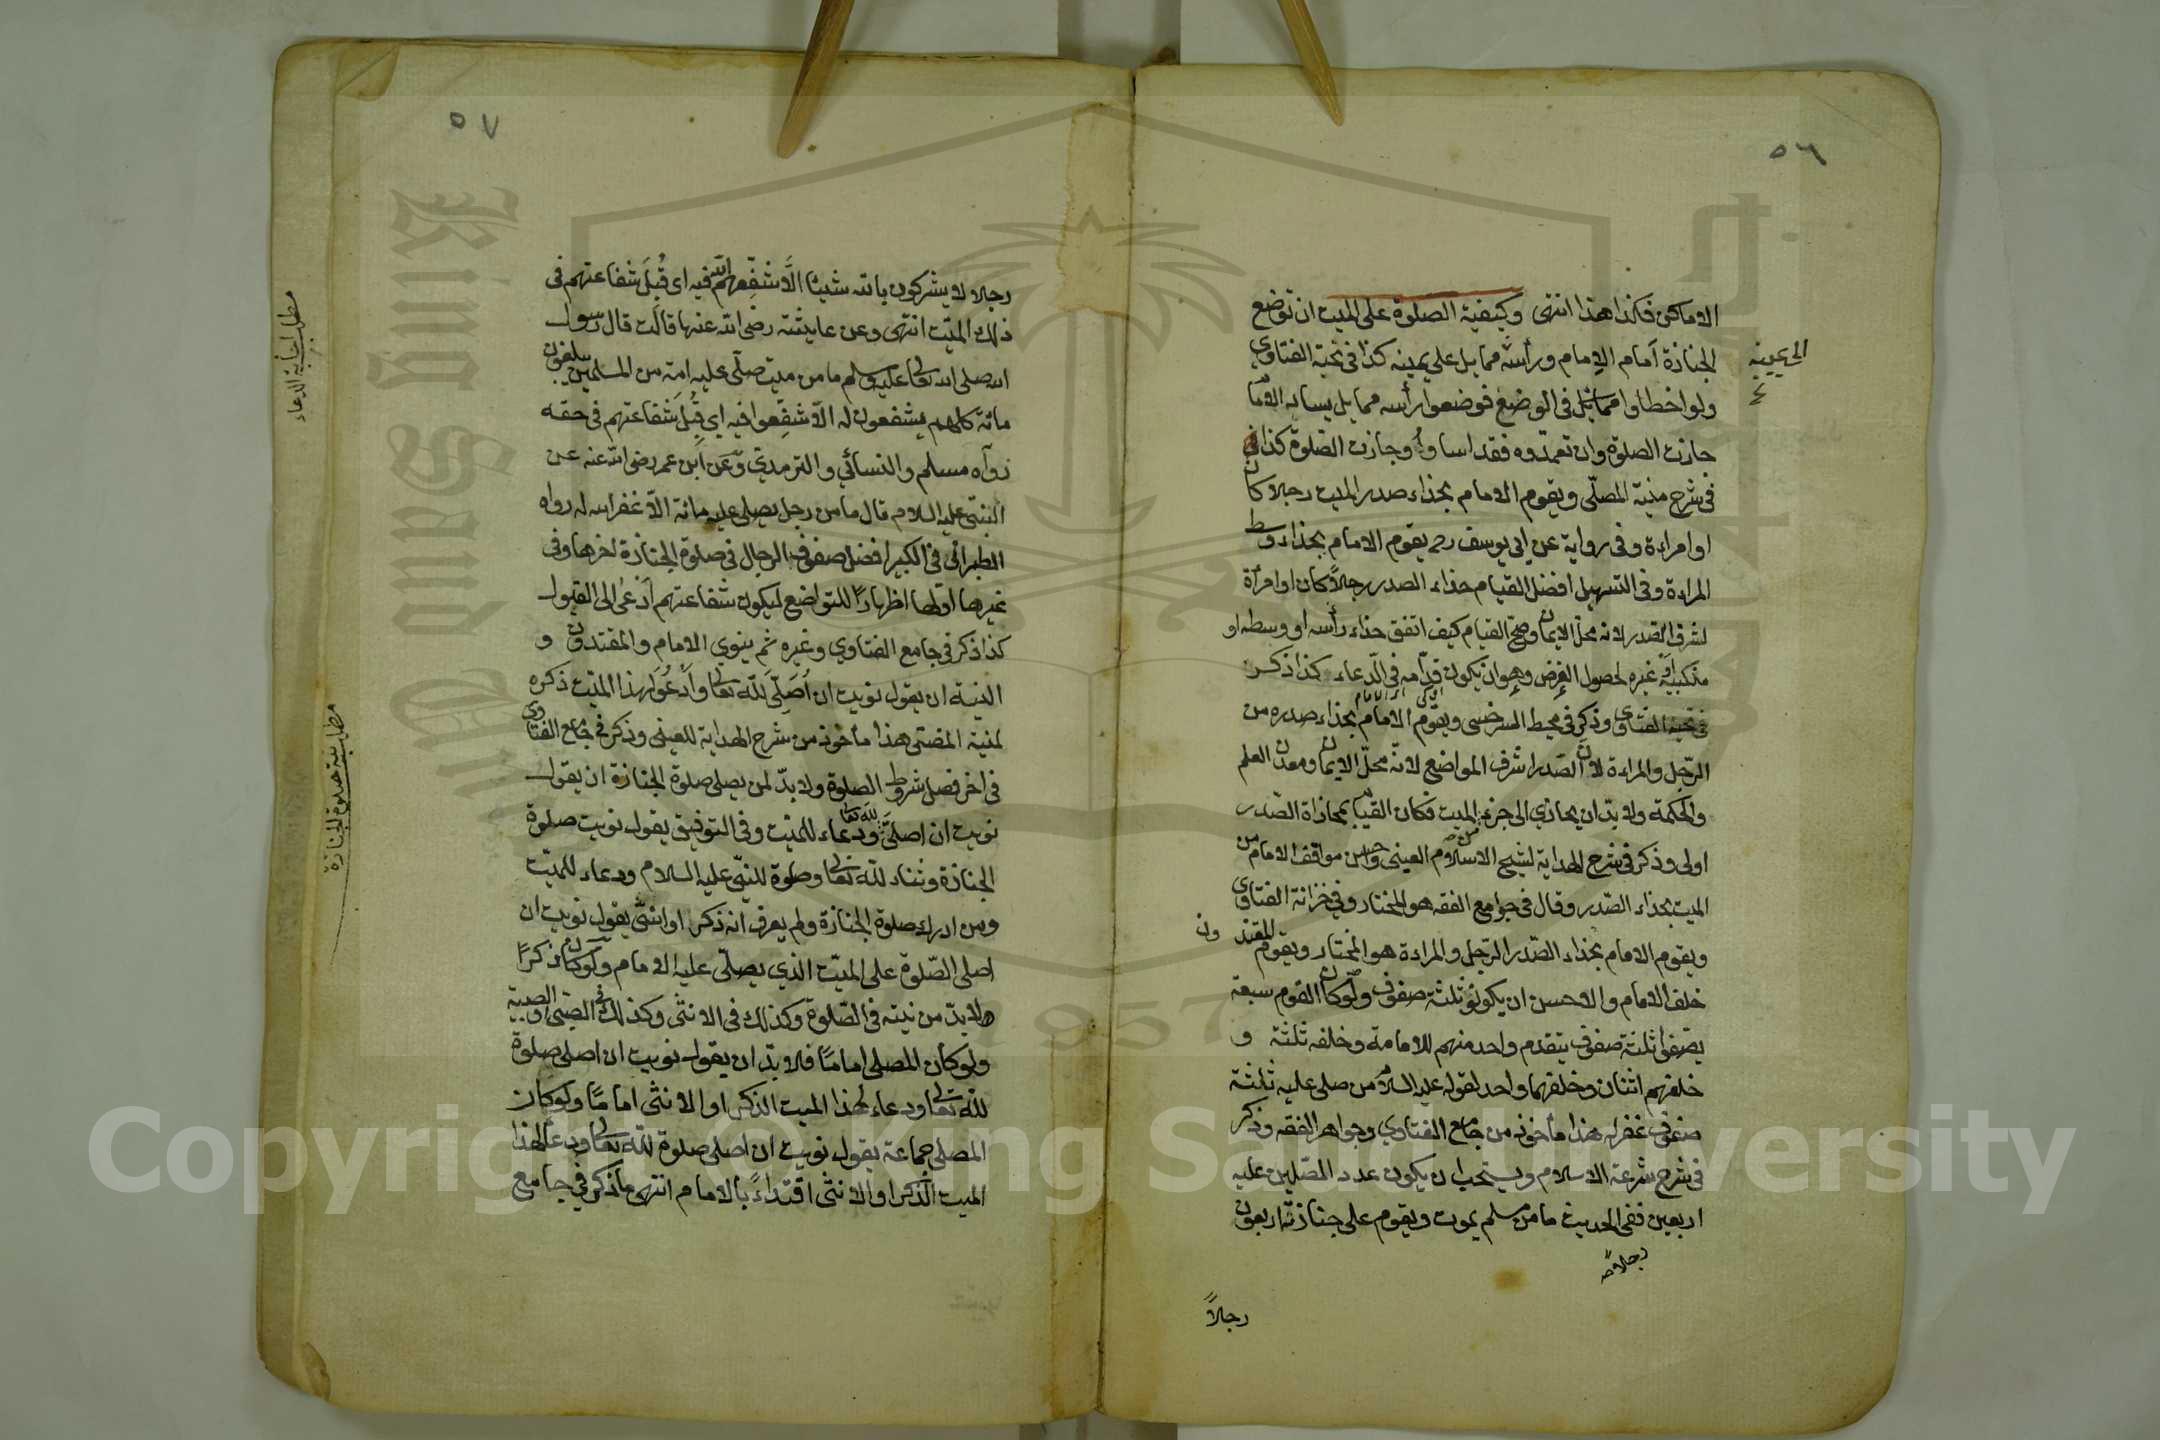 ٥٦
الاماكن فكذا هذا انتهى وكيفية الصلوة على الميت ان توضع
الجنازة امام الامام ورأسه مما يلي على يمينه كذا في نخبة الفتاوي
ولو اخطاوا في الوضع فوضعوا رأسه مما يلي يسار الاما
جازت الصلوة وان تعمدوه فقد اساوا وجازت الصلوة كذا
في شرح منية المصلّى ويقوم الامام بحذاء صدر الميت رجلا كان
او امراءة وفي رواية عن ابي يوسف رح يقوم الامام بحذاء وسط
المراءة وفي التسهيل افضل القيام حذاء الصدر رجلاً كان او امرأة
لشرف الصدر لانه محل الايمان وصحّ القيام كيف اتفق حذاء رأسه او وسطه او
منكبيه او غيره لحصول الغرض وهو ان يكون قدّامه في الدّعاء كذا ذكر
في نخبة الفتاوى وذكر في محيط السرخسى ويقوم الامام بحذاء صدره من
الرّجل والمراءة لان الصّدر اشرف المواضع لانّه محلّ الايمان ومعدن العلم
والحكمة ولا بدّ ان يحاذي الى جزء الميت فكان القيام بمحاذاة الصّدر
اولى وذكر في شرح الهداية لشيخ الاسلام العينى واحسن مواقف الامام من
الميت بحذاء الصّدر وقال في جوامع الفقه هو المختار وفي خزانة الفتاوى
ويقوم الامام بحذاء الصّدر الرّجل والمراءة هو المختار ويقوم المقتدون
خلف الامام والاحسن ان يكونو ثلثة صفوف ولو كان القوم سبعة
يصفوا ثلثة صفوف يتقدم واحد منهم للامامة وخلفه ثلثة و
خلفهم اثنان وخلفهما واحد لقوله عليه السلام من صلى عليه ثلثة
صفوف غفر له هذا مأخوذ من جامع الفتاوي وجواهر الفقه وذكر
في شرح شرعة الاسلام ويستحب ان يكون عدد المصّلين عليه
اربعين ففى الحديث ما من مسلم يموت ويقوم على جنازته اربعون
رجلا صح
رجلاً
٥٧
رجلا لا يشركون بالله شيئا الّا شفّعهم الله فيه اى قُبِلَ شفاعتهم في
ذلك الميّت انتهى وعن عايشة رضى الله عنها قالت قال رسول
الله صلى الله تعالى عليه وسلم ما من ميت صلّى عليه امة من المسلمين يبلغون
مائة كلهم يشفعون له الّا شفّعوا فيه اي قُبِلَ شفاعتهم في حقه
رواه مسلم والنسائي والترمذي وعن ابن عمر رضى الله عنه عن
النبىّ عليه السلام قال ما من رجل يصلى عليه مائة الّا غفر الله له رواه
الطبرانى في الكبير افضل صفوف الرجال في صلوة الجنازة اخرها وفى
غيرها اولها اظهارًا للتواضع ليكون شفاعتهم ادعى الى القبول
كذا ذكر في جامع الفتاوي وغيره ثم ينوي الامام والمقتدون و
النية ان يقول نويت ان اُصَلِّىَ للّه تعالى واَدْعُوَ لهذا الميّت ذكره
لمنية المفتى هذا مأخوذ من شرح الهداية للعينى وذكر في جامع الفتاوى
في اخر فصل شروط الصلوة ولا بدّ لمن يصلى صلوة الجنازة ان يقول
نويت ان اصلىَّ لله تعالى ودعاء للميّت وفى التوفيق يقول نويت صلوة
الجنازة وثناء للّه تعالى وصلوة للنبّى عليه السلام ودعاء للميّت
ومن ادرك صلوة الجنازة ولم يعرف انه ذكر او انثى يقول نويت ان
اصلى الصّلوة على الميّت الذي يصلّى عليه الامام ولو كان ذكرًا
فلا بدّ من نيته في الصّلوة وكذلك في الانثى وكذلك في الصبّى والصبيّة
ولو كان المصلى امامًا فلا بدّ ان يقول نويت ان اصلى صلوة
للّه تعالى ودعاء لهذا الميت الذكر او الانثى امامًا ولو كان
المصلى جماعة يقول نويت ان اصلى صلوة للّه تعالى ودعاء لهذا
الميت الذّكر او الانثى اقتداءً بالامام انتهى ما ذكر في جامع
مطلب نية صلوة الجنازة
Copyright © King Saud University
King Saud University
1957